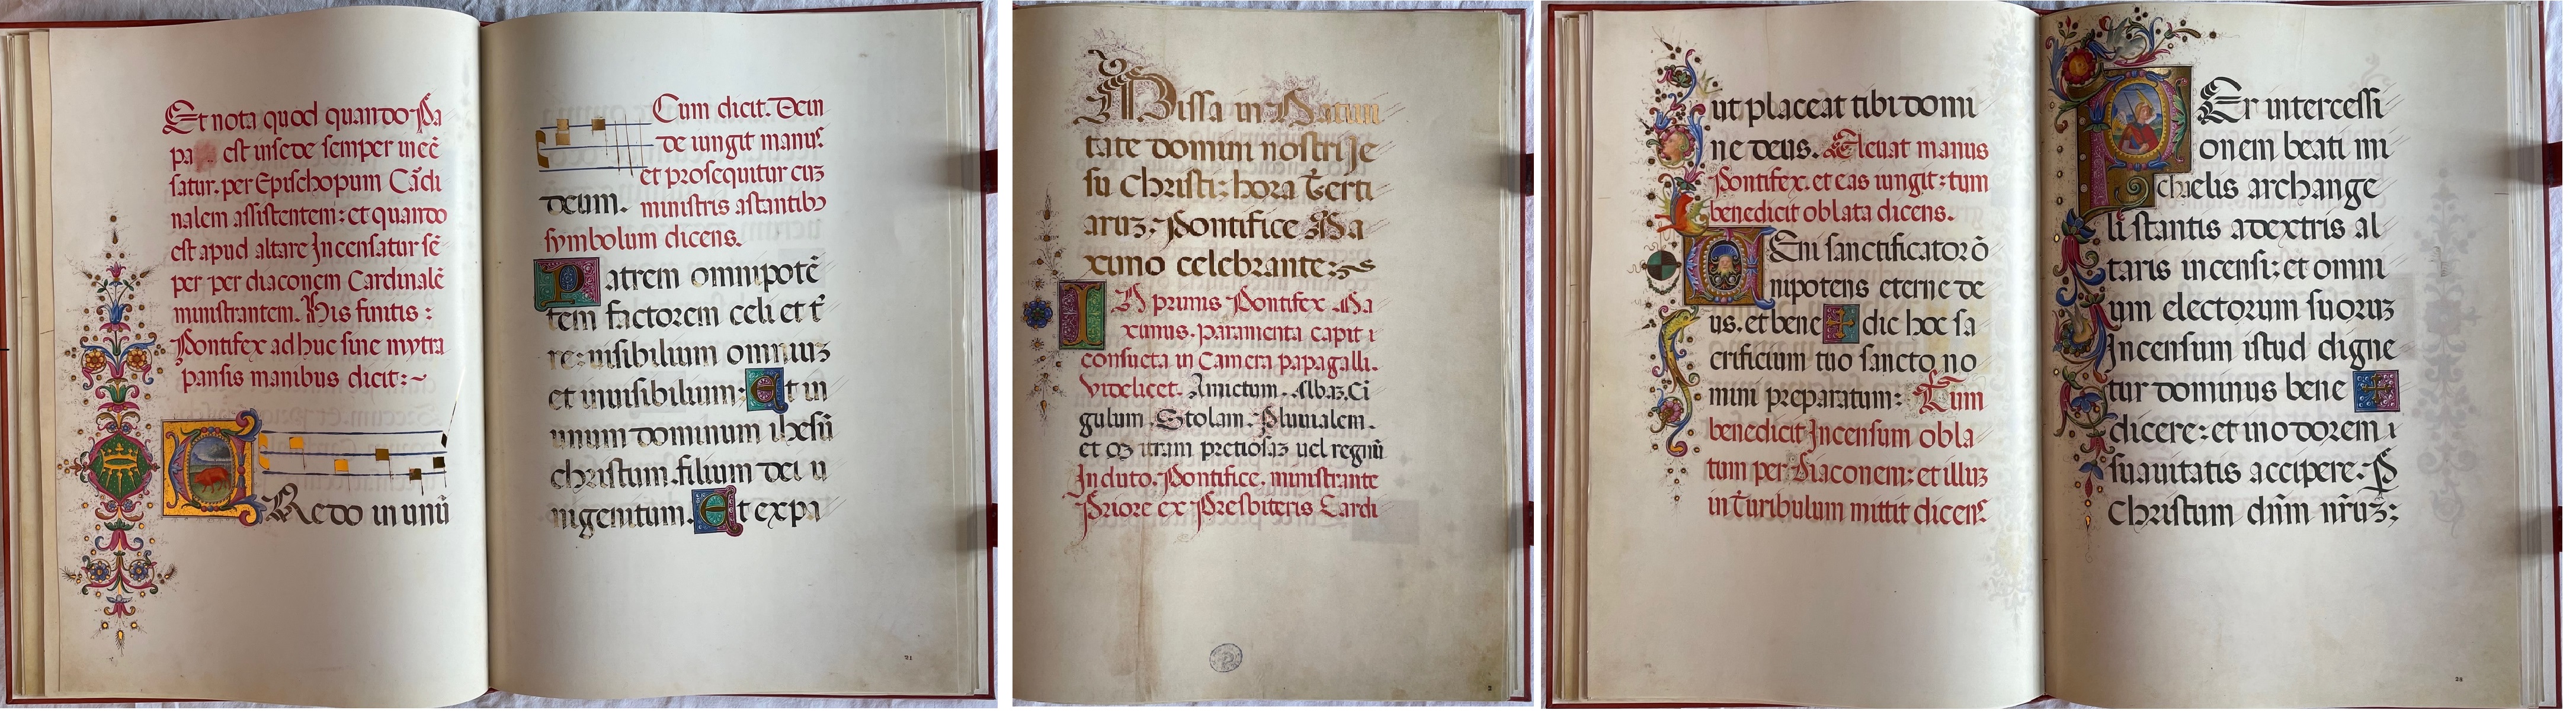 Et nota quod quando Pa
pa est in sede semper incē
satur. per Epischopum Cādi
nalem assistentem: et quando
est apud altare Incensatur sē
per per diaconem Cardinalē
ministrantem. His finitis:
Pontifex ad huc sine mytra
pansis manibus dicit:~
Credo in unū
Cum dicit. Dein
de iungit manus
et prosequitur cuz
deum. ministris astantibꝰ
symbolum dicens.
Patrem omnipotē
tem factorem celi et t̄
re: uisibilium omniuz
et inuisibilium: Et in
unum dominum ihesū
christum. filium dei u
nigenitum. Et ex pa
21
Missa in Natiui
tate domini nostri Je
su Christi: hora Terti
aruz. Pontifice Ma
ximo celebrante:
IN primis Pontifex Ma
ximus. paramenta capit i
consueta in Camera papagalli.
videlicet. Amictum. Albaz. Ci
gulum. Stolam. Pluuialem.
et mitram pretiosaz uel regnū
Induto. Pontifice. ministrante
Priore ex Presbiteris Cardi
2
ut placeat tibi domi
ne deus. Eleuat manus
Pontifex. et eas iungit: tum
benedicit oblata dicens.
Ueni sanctificator ō
nipotens eterne de
us. et bene ✝ dic hoc sa
crificium tuo sancto no
mini preparatum: Tum
benedicit Incensum obla
tum per Diaconem: et illuz
in Turibulum mittit dicens.
Per intercessi
onem beati mi
chaelis archange
li stantis a dextris al
taris incensi: et omni
um electorum suoruz
Incensum istud digne
tur dominus bene ✝
dicere: et in odorem i
suauitatis accipere. P
Christum dn̄m nr̄uz:
24